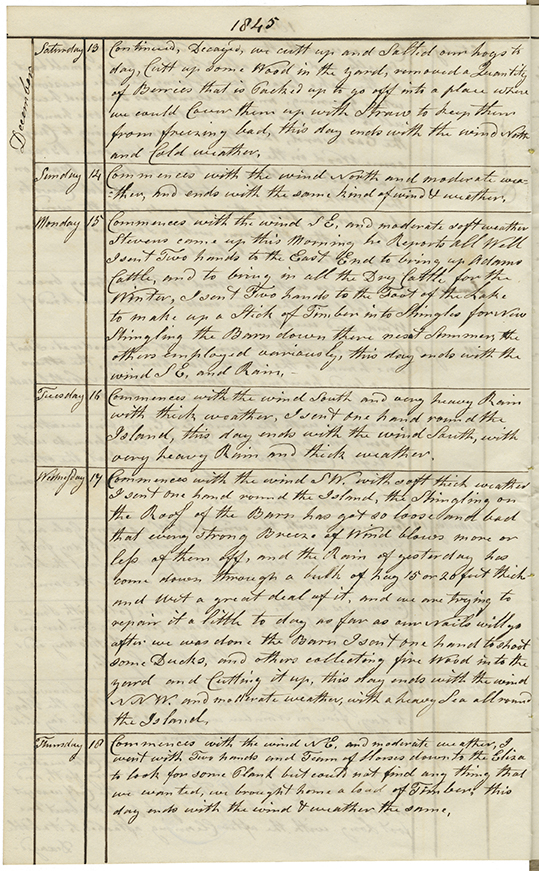 1845
December
Saturday 13 Continued, Decayed, we cutt up and Salted our hogs to
day, Cutt up some Wood in the yard, removed a Quantity
of Berries that is Pack'd up to go off into a place where
we could Cover them up with Straw to keep them
from freezing bad, this day ends with the wind North
and Cold weather.
Sunday 14 Commences with the wind North and moderate wea-
-ther, and ends with the same kind of wind & weather.
Monday 15 Commences with the wind S E, and moderate soft weather
Stevens came up this Morning he Reports all Well
I sent Two hands to the East End to bring up Adams
Cattle, and to bring in all the Dry Cattle for the
Winter, I sent Two hands to the Foot of the Lake
to make up a Stick of Timber into Shingles for New
Shingling the Barn down there next Summer, the
others employed variously, this day ends with the
wind S E, and Rain,
Tuesday 16 Commences with the wind South and very heavy Rain
with thick weather, I sent one hand round the
Island, this day ends with the wind South, with
very heavy Rain and thick weather.
Wednesday 17 Commences with the wind S W. with soft thick weather
I sent one hand round the Island, the Shingling on
the Roof of the Barn has got so loose and bad
that every strong Breeze of Wind blows more or
less of them off, and the Rain of yesterday has
come down through a bulk of hay 15 or 20 feet thick
and Wet a great deal of it. and we are trying to
repair it a little to day as far as our Nails will go
after we was done the Barn I sent one hand to shoot
some Ducks, and others collecting fire Wood into the
yard and Cutting it up, this day ends with the wind
N N W. and moderate weather, with a heavy Sea all round
the Island.
Thursday 18 Commences with the wind N E, and moderate weather, I
went with Two hands and Team of Horses down to the Eliza
to look for some Plank but could not find any thing that
we wanted, we brought home a load of Timber, this
day ends with the wind & weather the same,